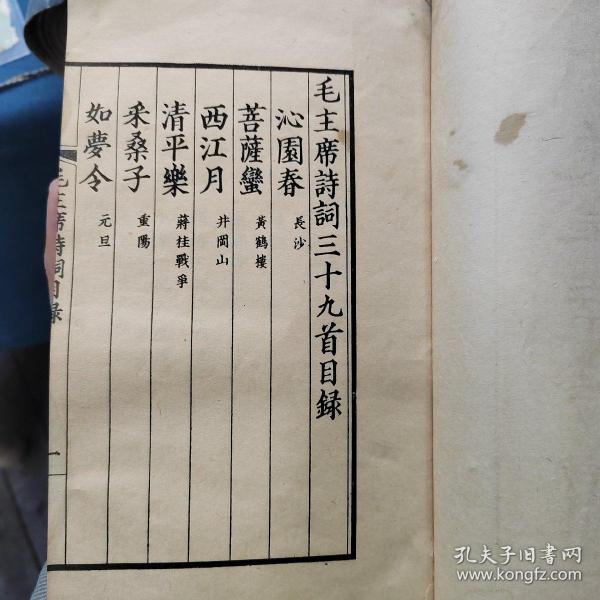 毛主席詩詞三十九首目録
沁園春 長沙
菩薩蠻 黃鶴樓
西江月 井岡山
清平樂 蔣桂戰爭
采桑子 重陽
如夢令 元旦
毛主席詩詞目録
一
孔夫子旧书网
www.kongfz.com